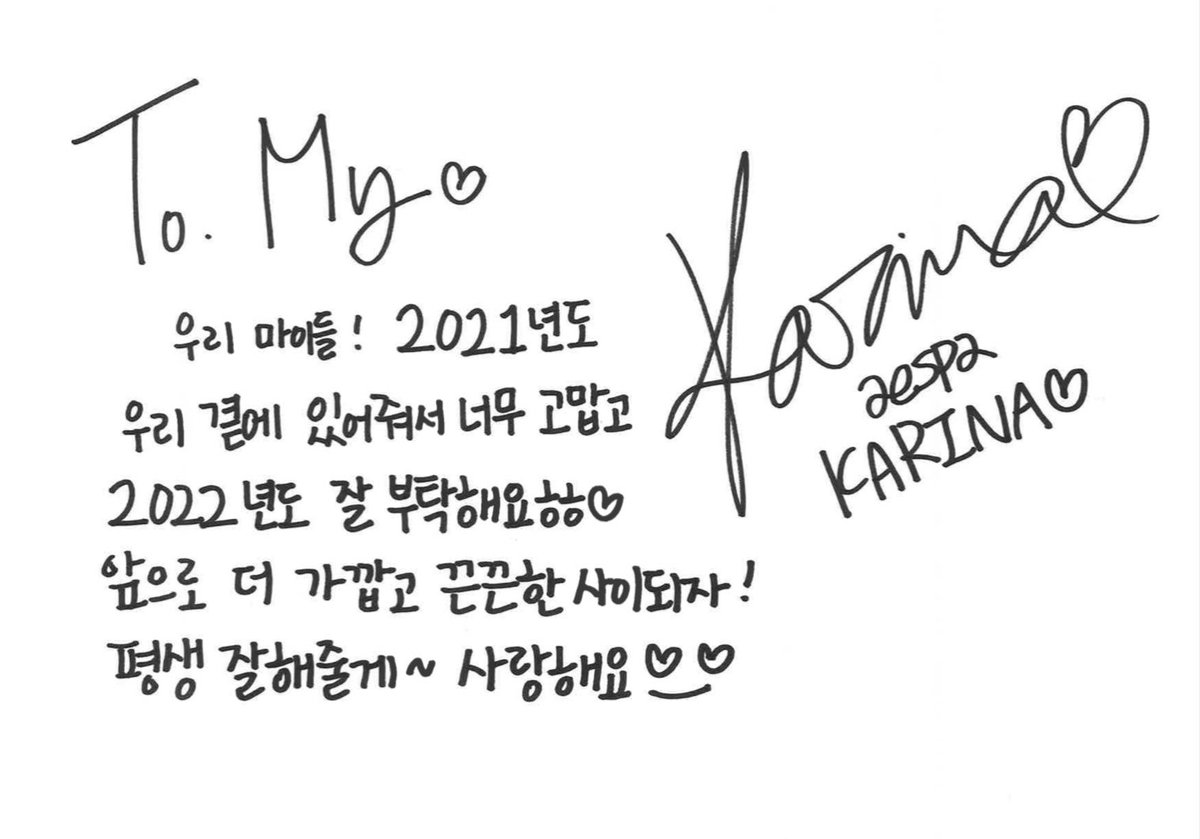 To. My♡
우리 마이들! 2021년도
우리 곁에 있어줘서 너무 고맙고
2022년도 잘 부탁해요ㅎㅎ♡
앞으로 더 가깝고 끈끈한 사이되자!
평생 잘해줄게~ 사랑해요♡♡
Karina♡
aespa
KARINA♡